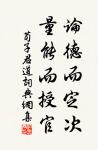 論德而定次
量能而授官
荀子君道詞典網集